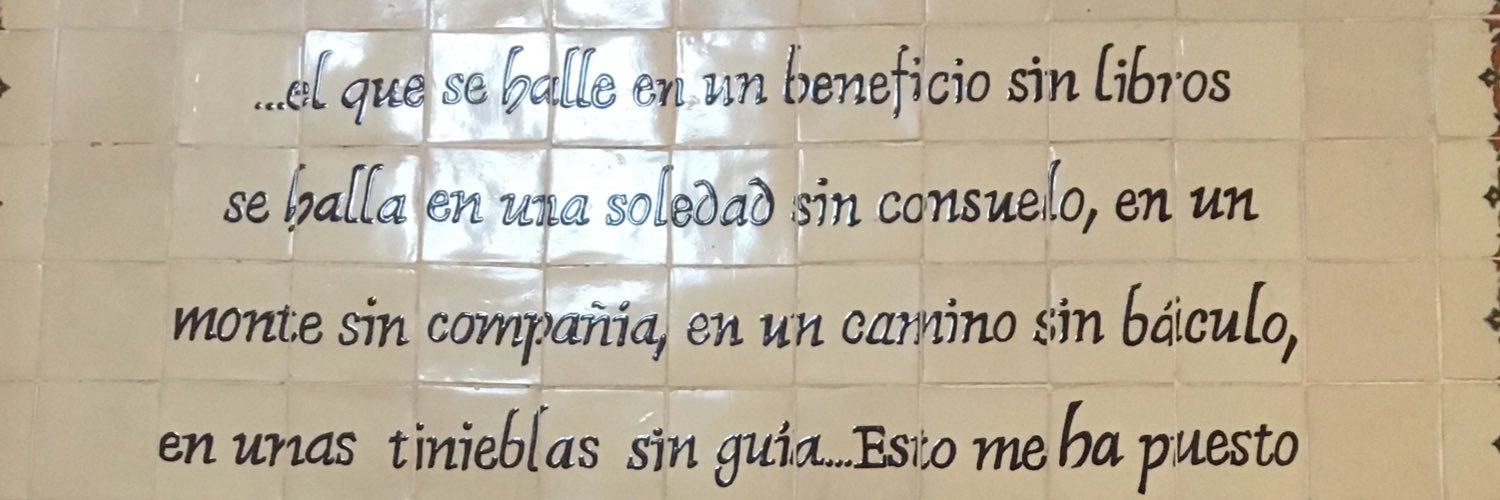 ...el que se halle en un beneficio sin libros
se halla en una soledad sin consuelo, en un
monte sin compañia, en un camino sin báculo,
en unas tinieblas sin guía...Esto me ha puesto